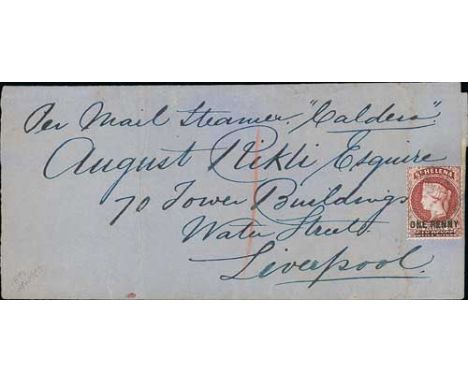 Per Mail Steamer "Caldera"
August Rikli Esquire
70 Tower Buildings
Water Street
Liverpool
ST HELENA
ONE PENNY